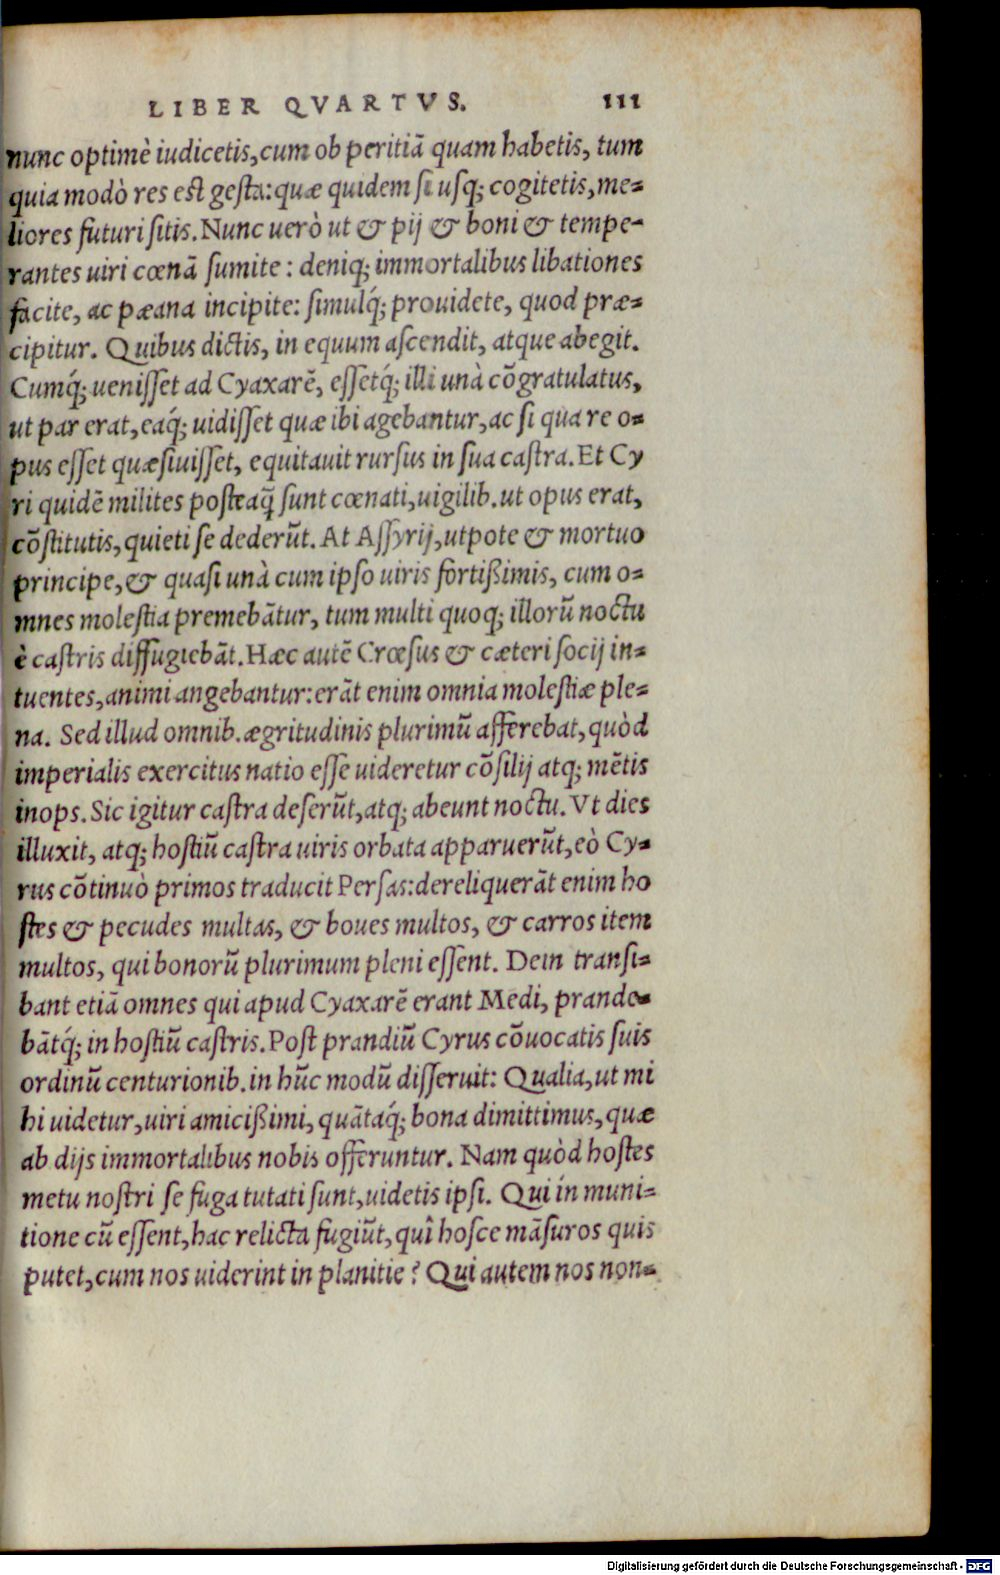 LIBER QVARTVS. 111
nunc optimè iudicetis, cum ob peritiā quam habetis, tum
quia modò res est gesta: quæ quidem si usq; cogitetis, me-
liores futuri sitis. Nunc uerò ut & pij & boni & tempe-
rantes uiri cœnā sumite: deniq; immortalibus libationes
facite, ac pæana incipite: simulq́; prouidete, quod præ-
cipitur. Quibus dictis, in equum ascendit, atque abegit.
Cumq́; uenisset ad Cyaxarē, essetq́; illi unà cōgratulatus,
ut par erat, eaq́; uidisset quæ ibi agebantur, ac si qua re o-
pus esset quæsiuisset, equitauit rursus in sua castra. Et Cy
ri quidē milites posteaq̃ sunt cœnati, uigilib. ut opus erat,
cōstitutis, quieti se dederūt. At Assyrij, utpote & mortuo
principe, & quasi unà cum ipso uiris fortißimis, cum o-
mnes molestia premebātur, tum multi quoq; illorū noctu
è castris diffugiebāt. Hæc autē Crœsus & cæteri socij in-
tuentes, animi angebantur: erāt enim omnia molestiæ ple-
na. Sed illud omnib. ægritudinis plurimū afferebat, quòd
imperialis exercitus natio esse uideretur cōsilij atq; mētis
inops. Sic igitur castra deserūt, atq; abeunt noctu. Vt dies
illuxit, atq; hostiū castra uiris orbata apparuerūt, eò Cy-
rus cōtinuò primos traducit Persas: dereliquerāt enim ho
stes & pecudes multas, & boues multos, & carros item
multos, qui bonorū plurimum pleni essent. Dein transi-
bant etiā omnes qui apud Cyaxarē erant Medi, prande-
bātq́; in hostiū castris. Post prandiū Cyrus cōuocatis suis
ordinū centurionib. in hūc modū disseruit: Qualia, ut mi
hi uidetur, uiri amicißimi, quātaq́; bona dimittimus, quæ
ab dijs immortalibus nobis offeruntur. Nam quòd hostes
metu nostri se fuga tutati sunt, uidetis ipsi. Qui in muni-
tione cū essent, hac relicta fugiūt, quî hosce māsuros quis
putet, cum nos uiderint in planitie? Qui autem nos non-
Digitalisierung gefördert durch die Deutsche Forschungsgemeinschaft - DFG